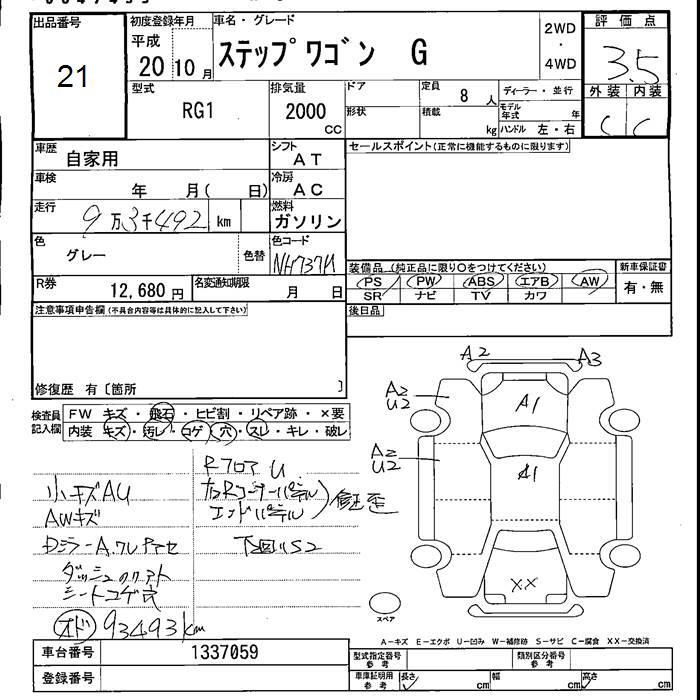 出品番号
21
初度登録年月
平成
20 10 月
車名・グレード
ステップワゴン G
2WD
・
4WD
評価点
3.5
外装 内装
C C
型式
RG1
排気量
2000
CC
ドア
形状
定員
8 人
積載
kg
ディーラー・並行
モデル年式 年
ハンドル 左・右
車歴
自家用
シフト
AT
セールスポイント(正常に機能するものに限ります)
車検
年 月( 日)
冷房
AC
走行
9万3千492 km
燃料
ガソリン
色
グレー
色替
色コード
NH737M
装備品(純正品に限り○をつけてください)
新車保証書
PS PW ABS エアB AW
有・無
SR ナビ TV カワ
R券
12,680 円
名変通知期限
月 日
後日品
注意事項申告欄(不具合内容等は具体的に記入して下さい)
修復歴 有〔箇所 〕
検査員
記入欄
FW キズ・飛石・ヒビ割・リペア跡・×要
内装 キズ・汚レ・コゲ・穴・スレ・キレ・破レ
A2 A3
A2
U2
A1
A2
U2
A1
XX
スペア
小キズAU
AWキズ
シートコゲ穴
オド 93493km
RフロアU
エンドパネル
修正歪
下回りS2
A-キズ E-エクボ U-凹み W-補修跡 S-サビ C-腐食 XX-交換済
車台番号
1337059
登録番号
型式指定番号
参考
類別区分番号
参考
車庫証明用
参考
長さ cm
幅 cm
高さ cm